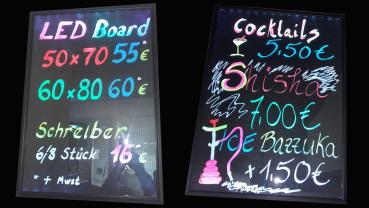 LED Board
50x70 55*€
60x80 60*€
Schreiber
6/8 Stück 16*€
* + Mwst
Cocktails
5,50€
Shisha
7,00€
Bazzuka
+1,50€